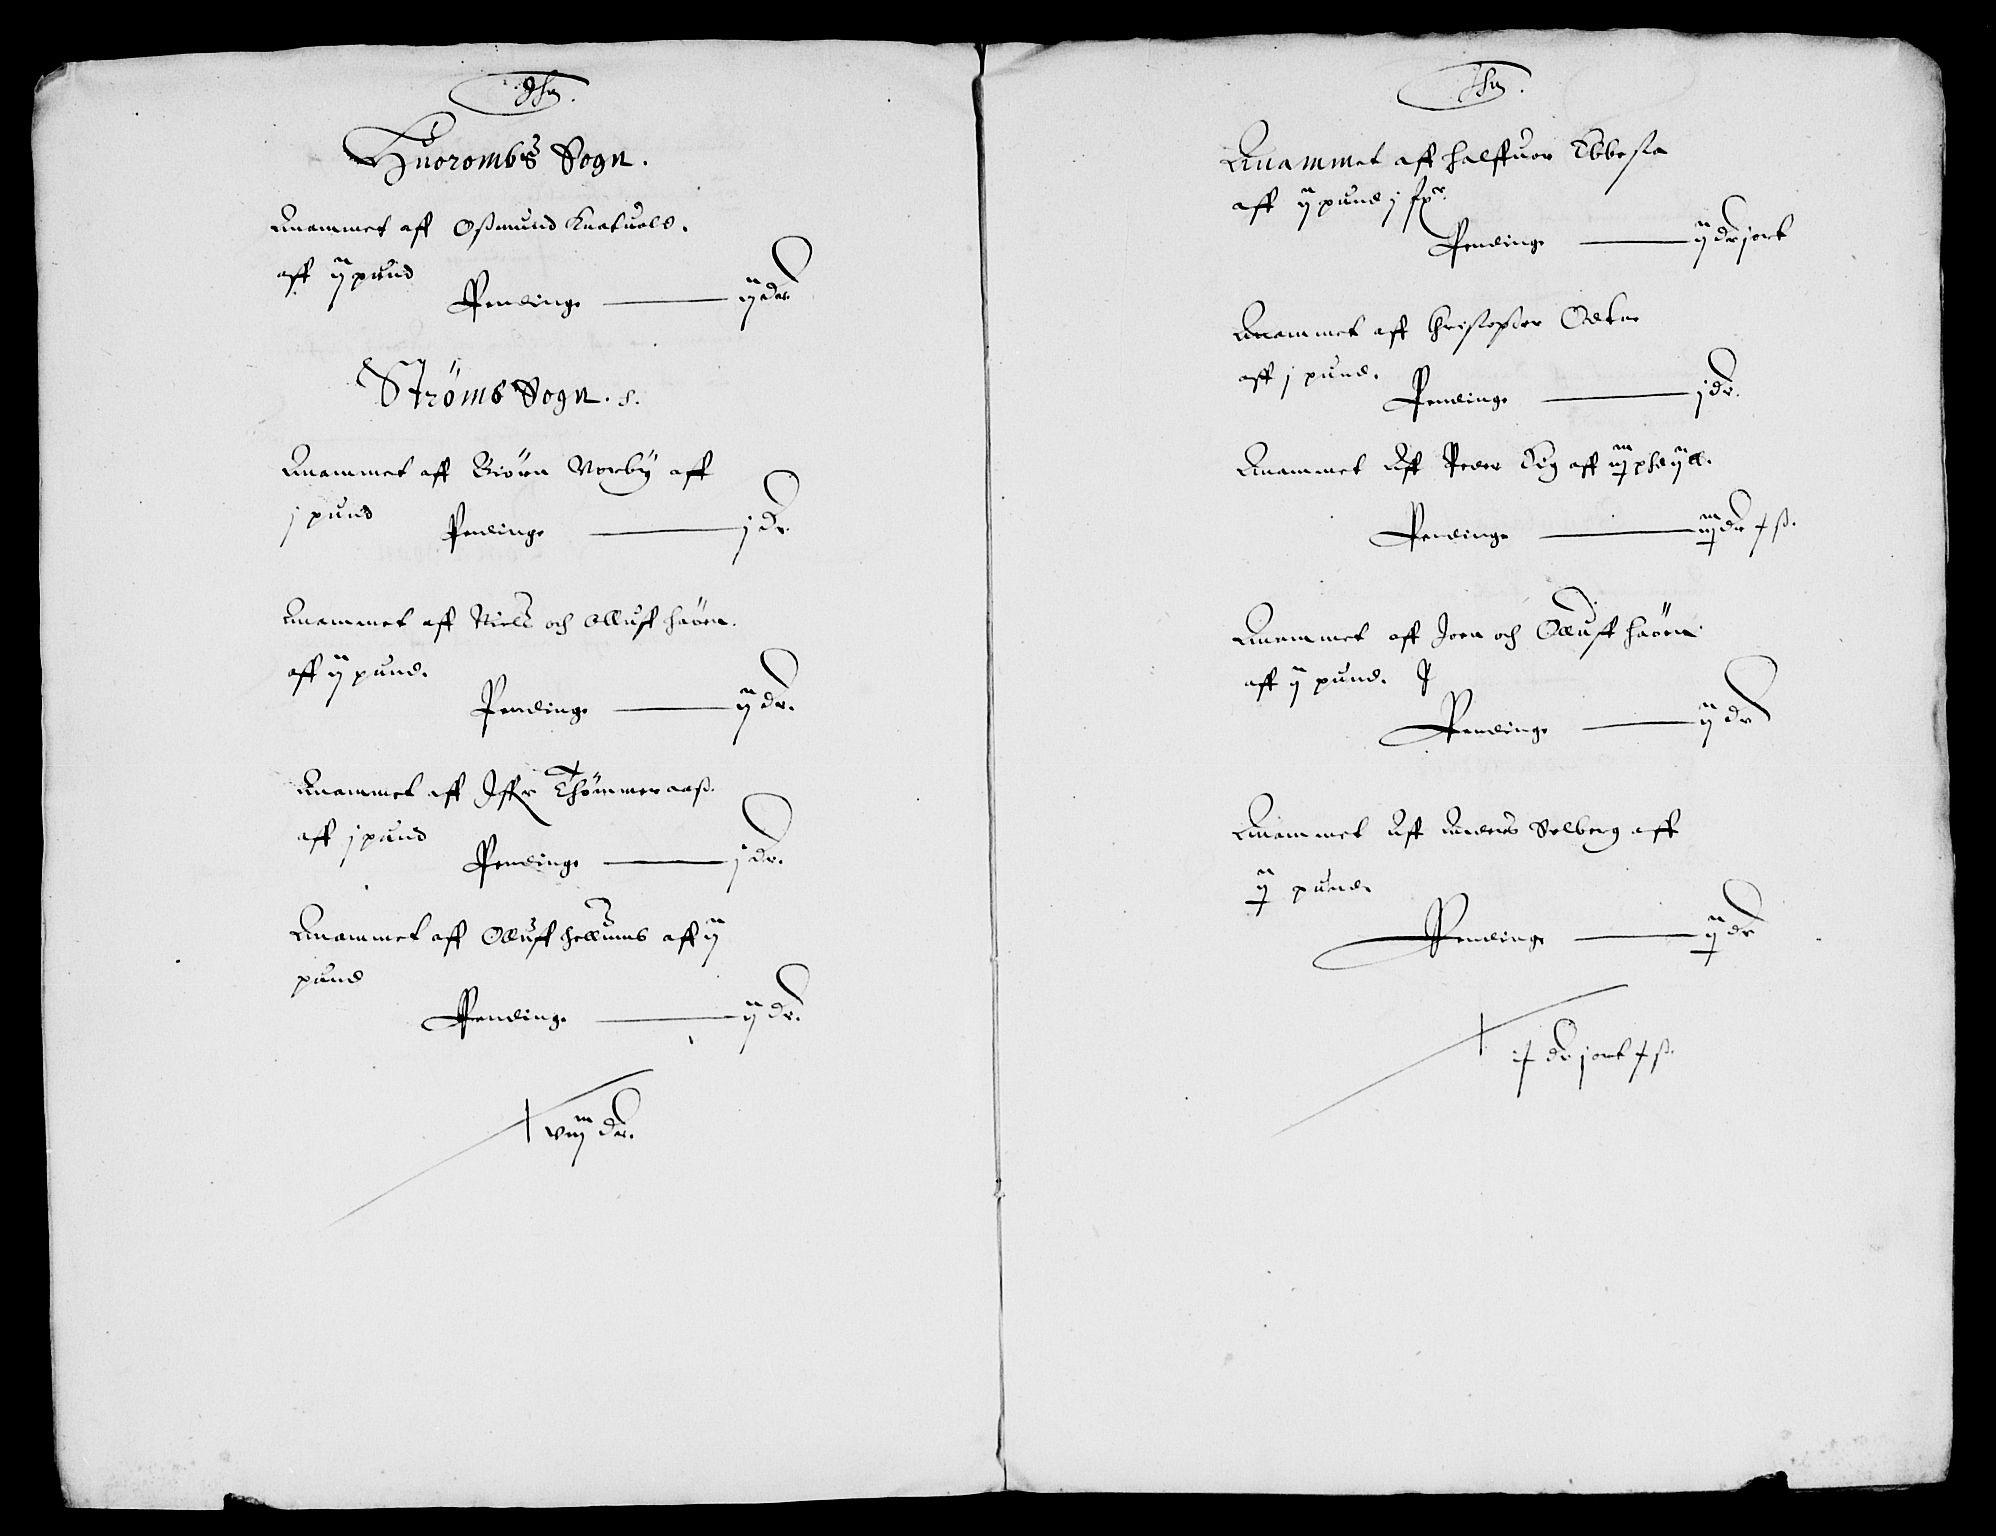 Jhs.
Huorombs Sogn.
Annammet aff Oßmund Knatuold.
aff ij pund
Pendinge ij dr.
Ströms Sogn. s.
Annammet aff Biörn Norby aff
j pund
Pendinge j dr.
Annammet aff Niels och Olluff haöen.
aff ij pund.
Pendinge ij dr.
Annammet aff Iffr Thömmeraaß.
aff j pund
Pendinge j dr.
Annammet aff Olluff hellums aff ij
pund
Pendinge ij dr.
viij dr.
Jhs.
Annammet aff halffuor Ebbesta
aff ij pund j
Pendinge ij dr j ort
Annammet aff Christopher
aff j pund.
Pendinge j dr.
Annammet Aff Peder aff
Pendinge dr ß.
Annammet aff Joen och Olluff haöen
aff ij pund.
Pendinge ij dr
Annammet Aff Anders Solberg aff
pund.
Pendinge dr
dr j ort ß.